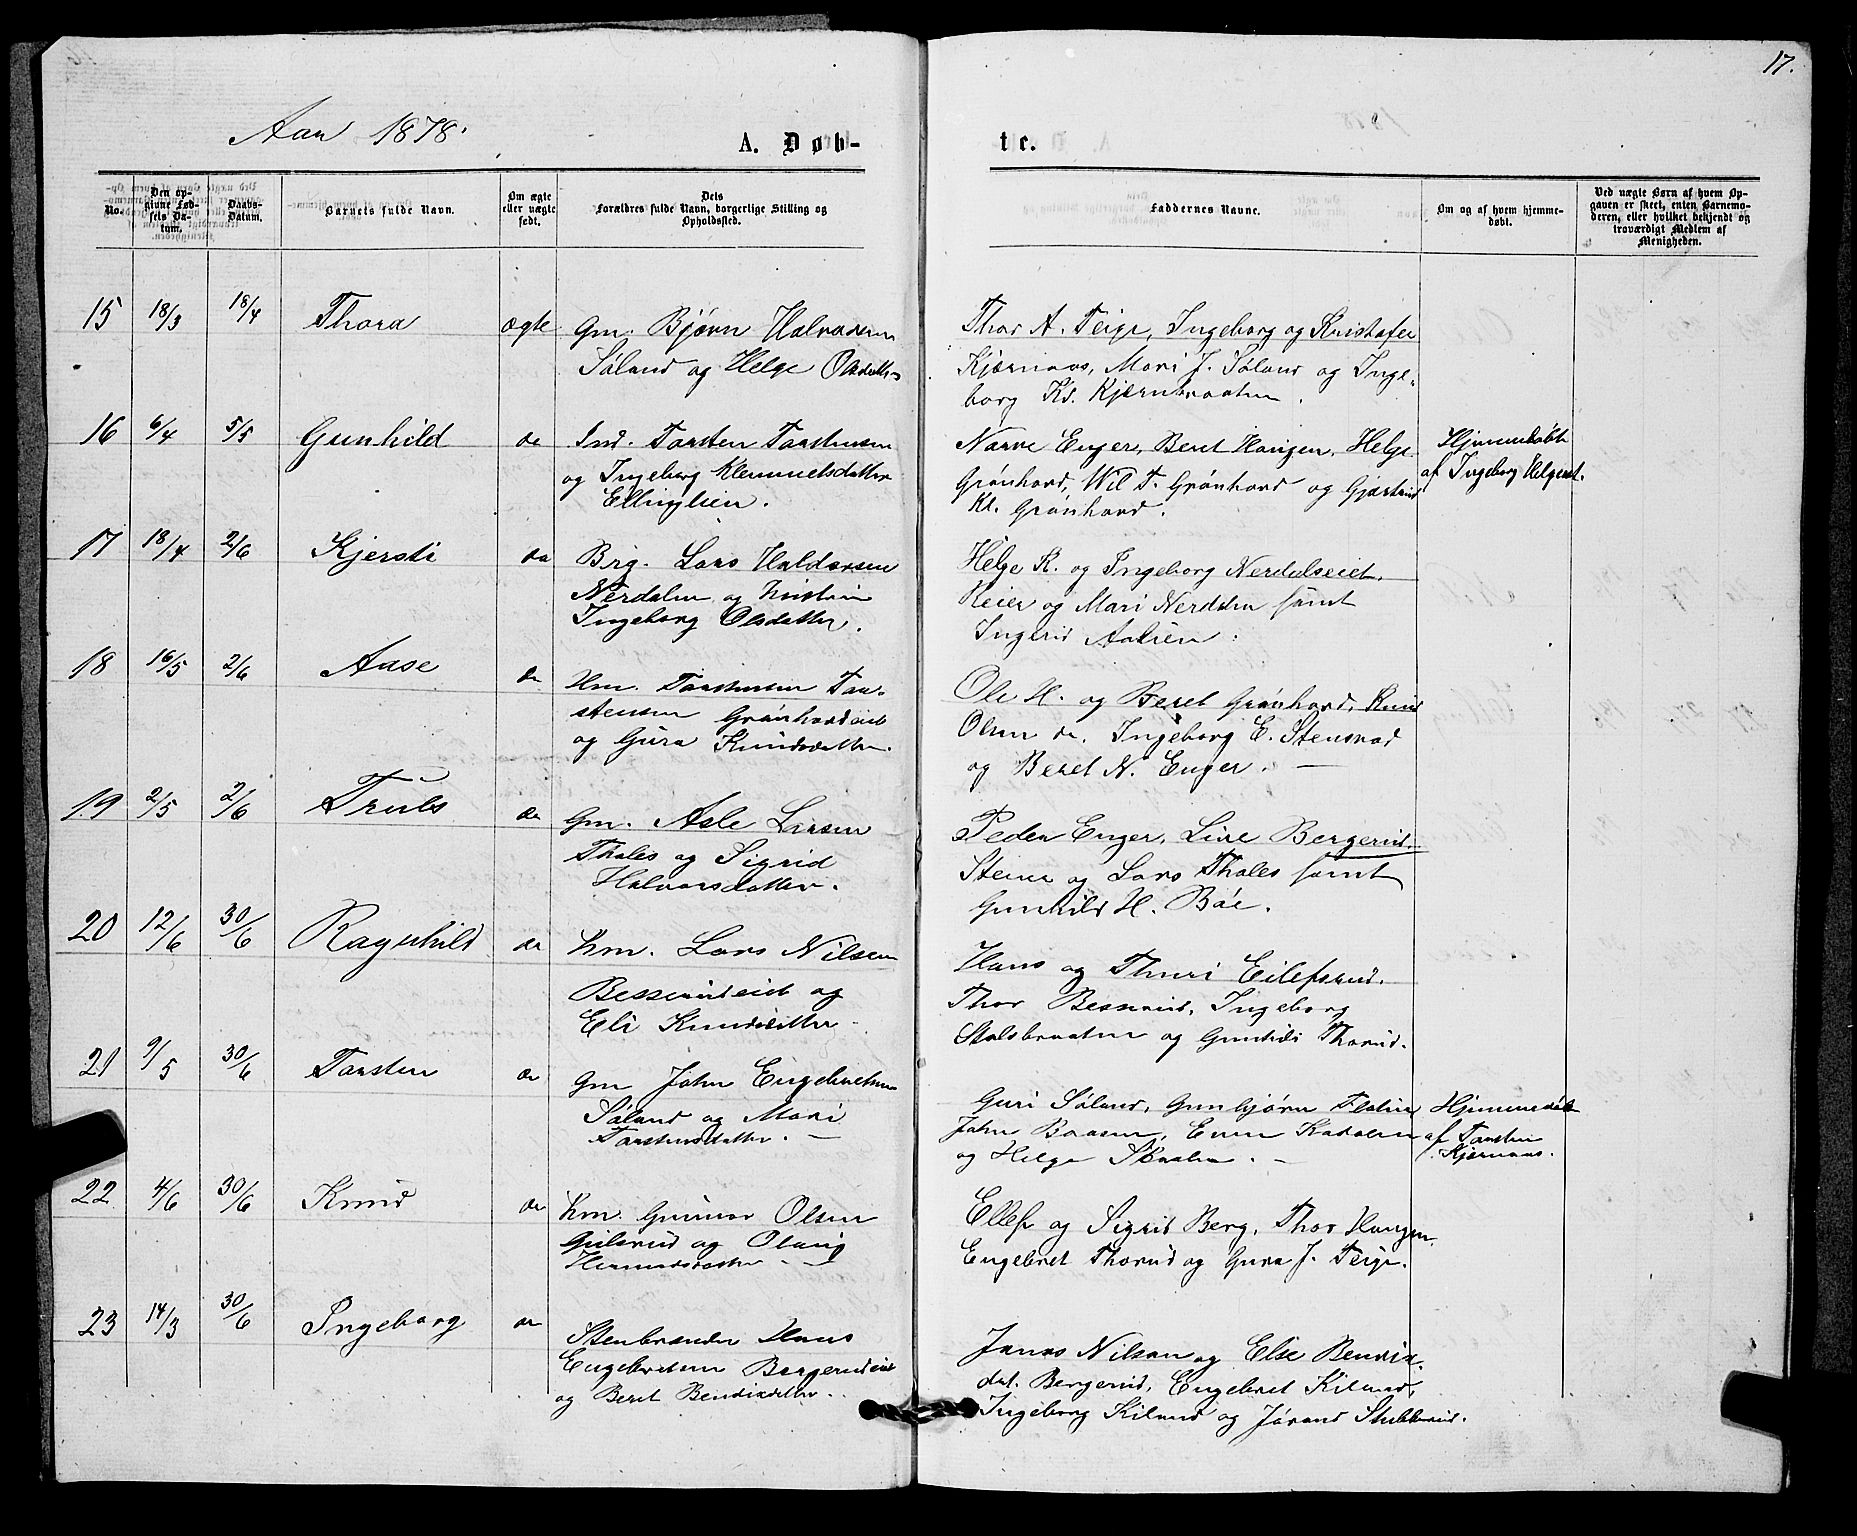 17.
Aar 1878.
A. Døb-
te.
No.
Den opgivne Fødsels Datum.
Daabs-Datum.
Barnets fulde Navn.
Om ægte eller uægte født.
Dets Forældres fulde Navn, borgerlige Stilling og Opholdssted.
Faddernes Navne.
Om og af hvem hjemmedøbt.
Ved uægte Børn af hvem Opgaven er skeet, enten Barnemoderen, eller hvilket bekjendt og troværdigt Medlem af Menigheden.
15 18/3 18/4 Thora ægte Gm. Bjørn Halvorsen
Søland og Helge Olsdatter
Thor A. Teige, Ingeborg og Kristofer
Kjærnaas, Mari J. Søland og Inge-
borg Ks. Kjærnbraaten.
16 6/4 5/5 Gunhild do Ind. Torsten Torstensen
og Ingeborg Klemmetsdatter
Ellinglien.
Narve Enger, Beret Haugen, Helge
Grønhovd, Wil T. Grønhovd og Gjertrud
Kl. Grønhovd.
Hjemmedøbt
af Ingeborg Helgesd.
17 18/4 2/6 Kjersti do Brg. Lars Haldorsen
Nerdalen og Hustru
Ingeborg Olsdatter.
Helge K. og Ingeborg Nerdalseiet,
Reier og Mari Nerdalen samt
Ingerid Aalien.
18 16/5 2/6 Aase do Hm. Torstensen Tor-
stensen Grønhovdeiet
og Gura Knudsdatter.
Ole H. og Beret Grønhovd, Knud
Olsen do. Ingeborg E. Stensrud
og Beret N. Enger.
19 2/5 2/6 Truls do Gm. Asle Larsen
Tholes og Sigrid
Halvorsdatter.
Peder Enger, Line Bergerud
Steinar og Lars Tholes samt
Gunhild H. Bøe.
20 12/6 30/6 Ragnhild do Hm. Lars Nilsen
Besserudeiet og
Eli Knudsdatter
Hans og Thuri Eilefsrud.
Thor Besserud, Ingeborg
Stalsbraaten og Gunhild Thorud.
21 9/5 30/6 Torsten do Gm John Engebretsen
Søland og Mari
Torstensdatter.
Guri Søland, Gunbjørn Flatin
John Baasen, Even Kadalen
og Helge Skaalen.
Hjemmedøbt
af Torsten
Kjærnaas.
22 4/6 30/6 Knud do Hm. Gunnar Olsen
Gulsrud og Olaug
Hermundsdatter.
Ellef og Sigrid Berg, Thor Haugen
Engebret Thorud og Gura J. Teige.
23 14/3 30/6 Ingeborg do Stenbrænder Hans
Engebretsen Bergerudeiet
og Beret Bendixdatter.
Jonas Nilsen og Else Bendix-
dat. Bergerud, Engebret Kiland,
Ingeborg Kiland og Jørand Stubberud.